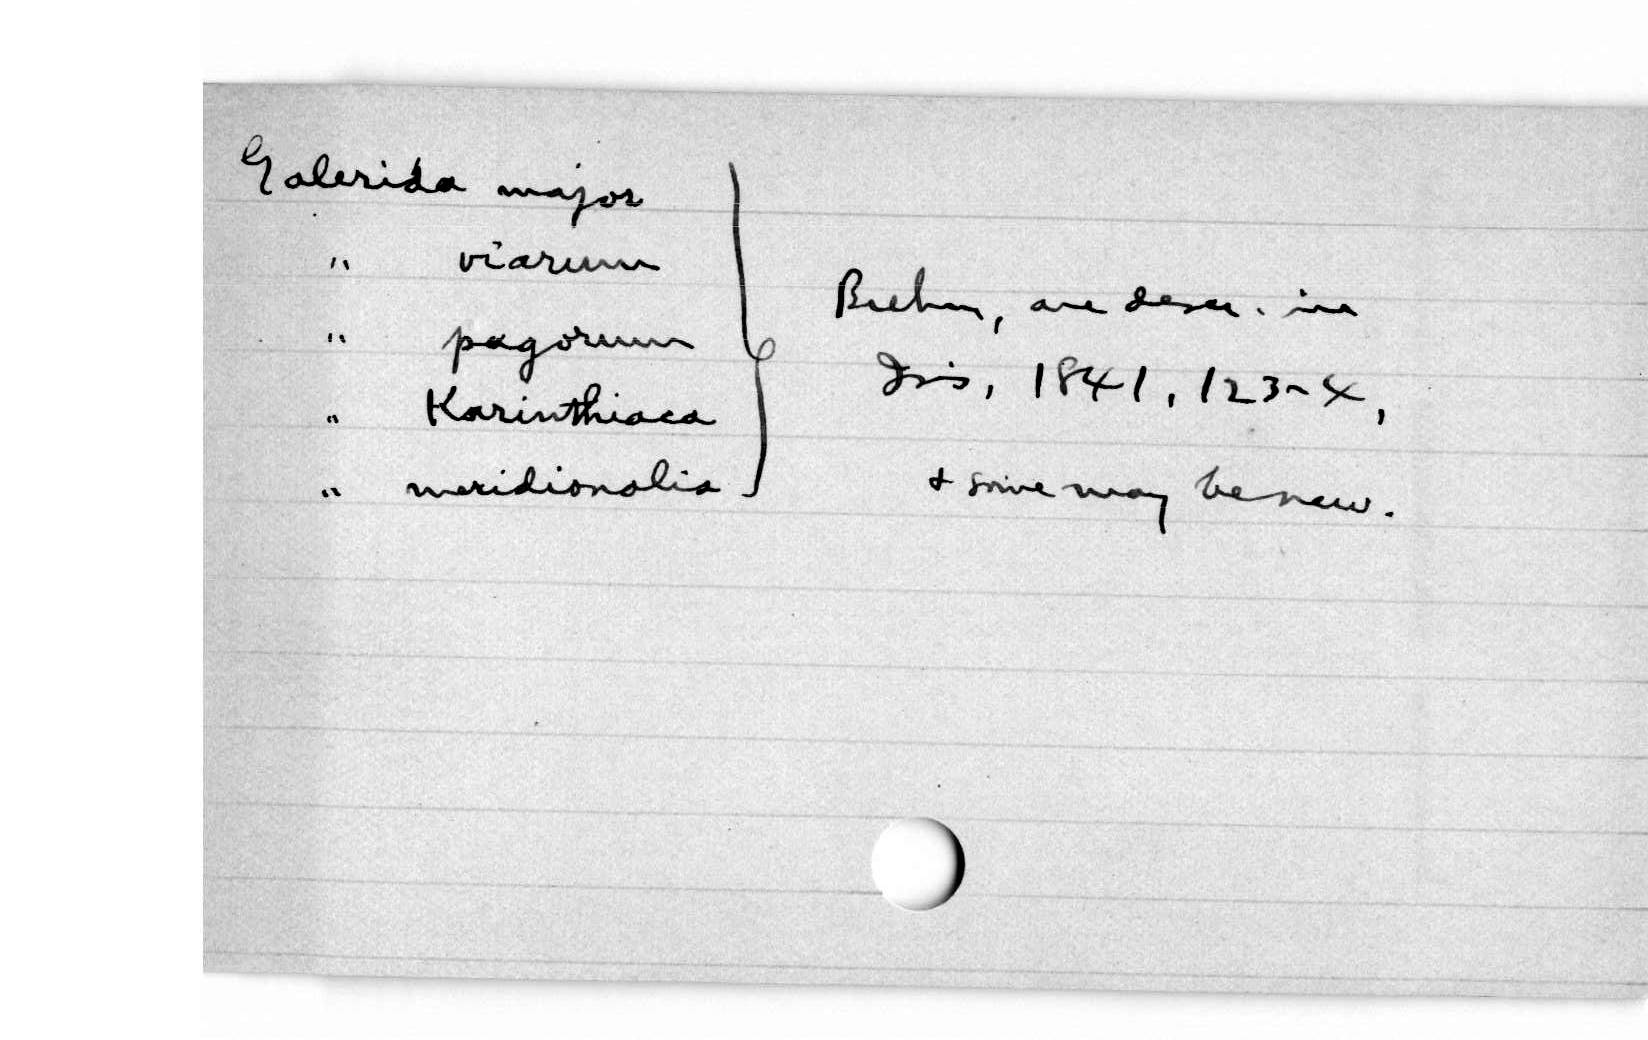 Galerida major
" viarum
" pagorum
" Karinthiaca
" meridionalis
Brehm, are descr. in
Isis, 1841, 123-4,
& some may be new.